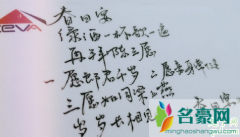 春日宴
绿酒一杯歌一遍
再拜陈三愿
一愿郎君千岁 二愿妾身常健
三愿如同梁上燕
岁岁长相见
EVA
名豪网
www.minghaow.com